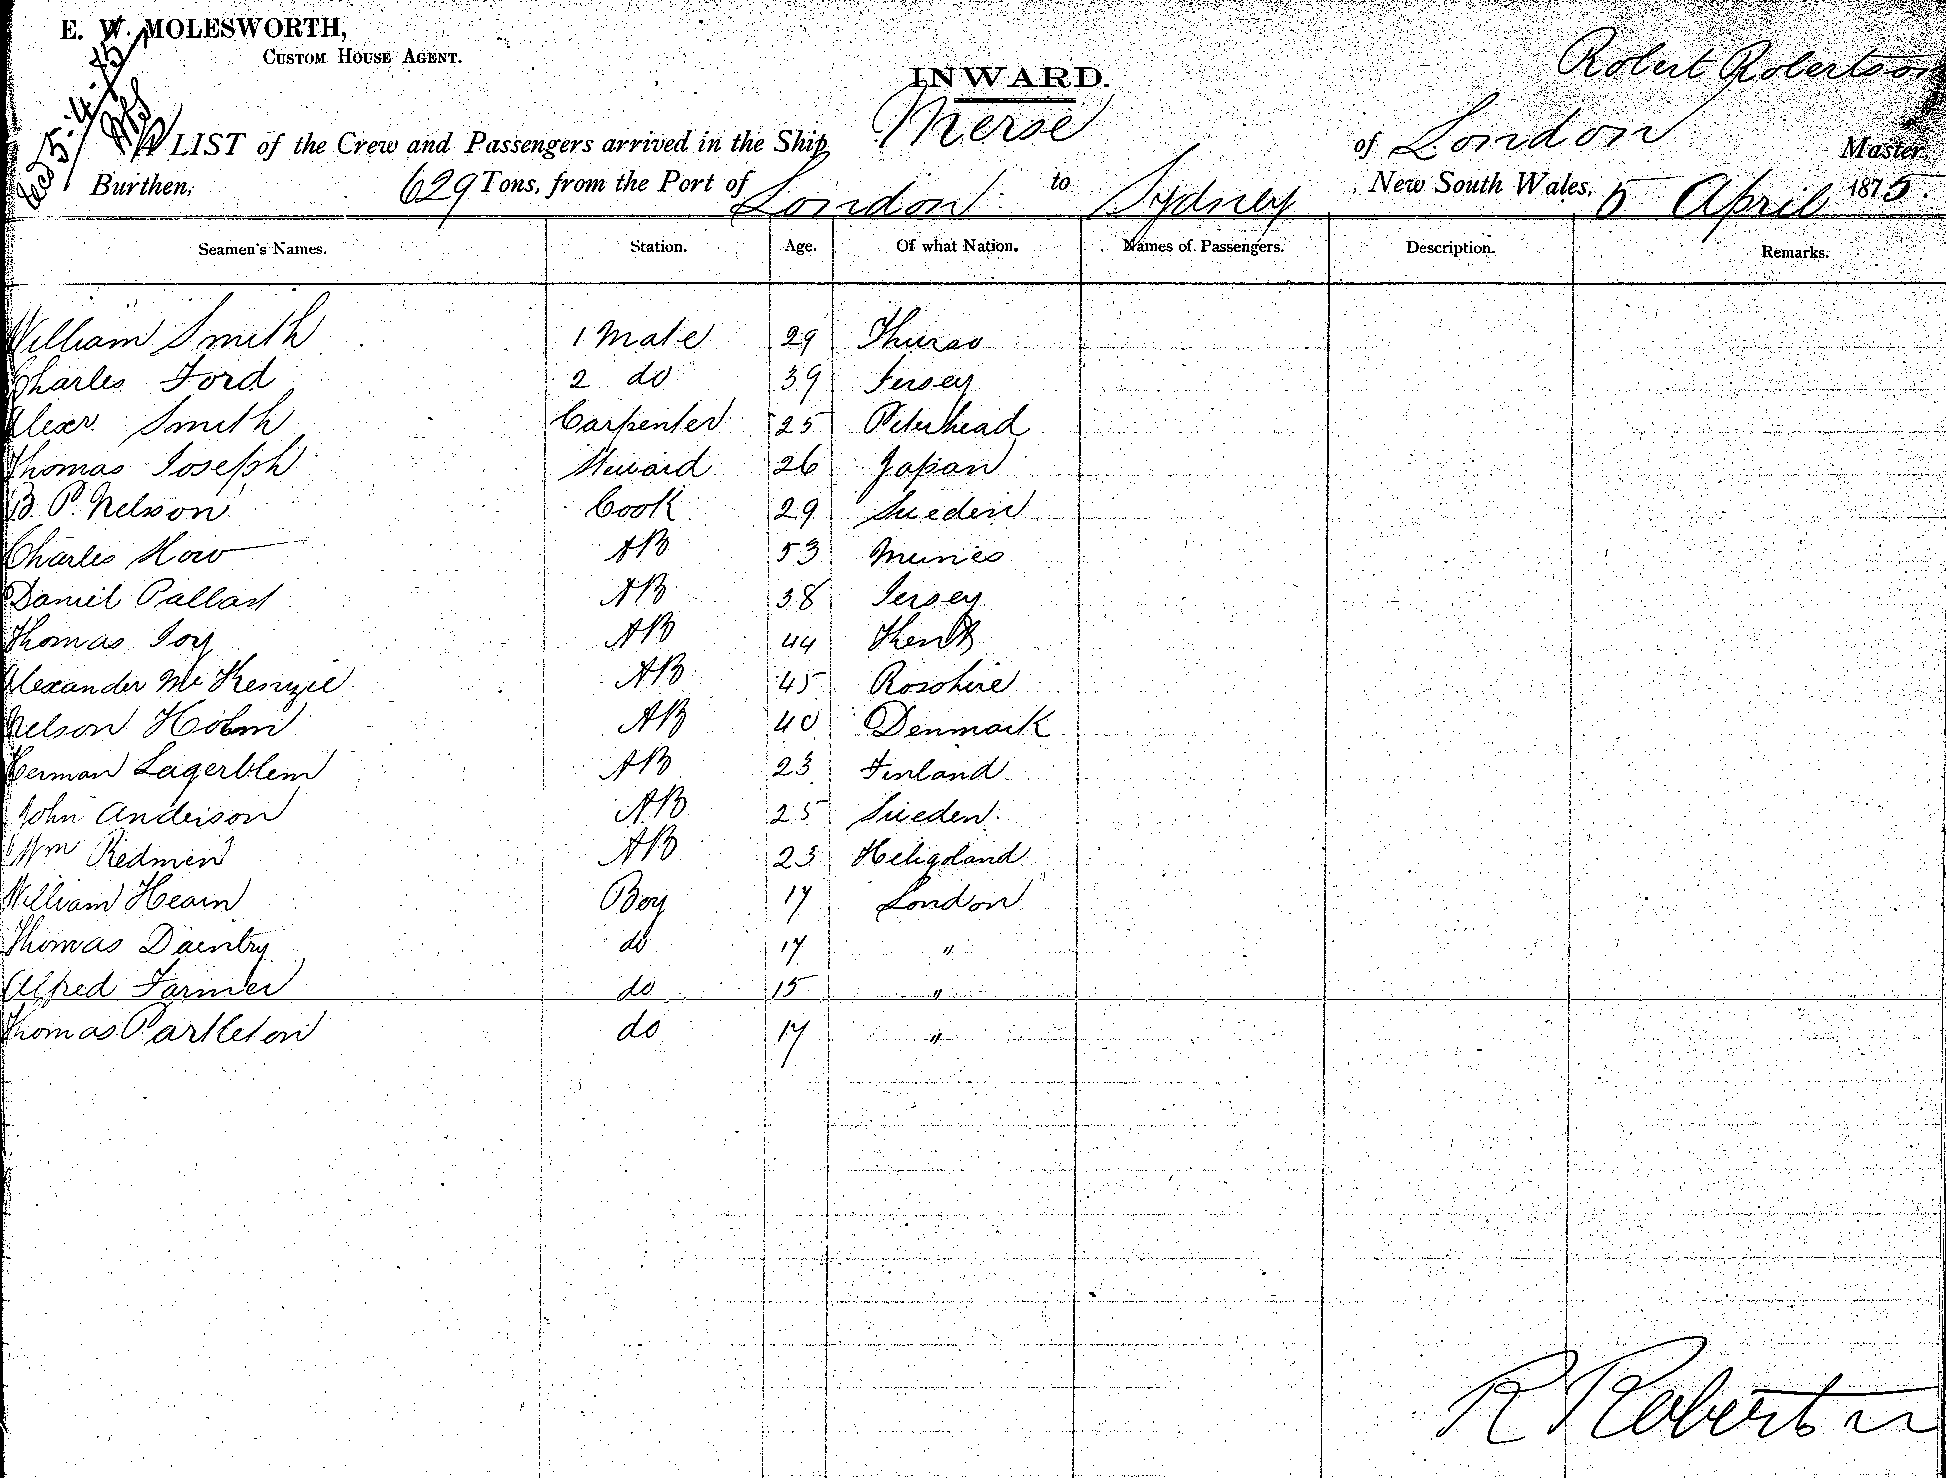 E. W. MOLESWORTH,
CUSTOM HOUSE AGENT.
INWARD.
Robert Robertson
LIST of the Crew and Passengers arrived in the Ship Merse of London Master
Burthen, 629 Tons, from the Port of London to Sydney New South Wales, 5 April 1875.
Seamen's Names. Station. Age. Of what Nation. Names of Passengers. Description. Remarks.
William Smith 1 Mate 29 Thurso
Charles Ford 2 do 39 Jersey
Alexr. Smith Carpenter 25 Peterhead
Thomas Joseph Steward 26 Japan
B. P. Nelson Cook 29 Sweden
Charles AB 53
Daniel Pallast AB 38 Jersey
Thomas Joy AB 44 Kent
Alexander McKenzie AB 45 Rosshire
Nelson Holm AB 40 Denmark
Herman Lagerblem AB 23 Finland
John Anderson AB 25 Sweden.
Wm Redmen AB 23 Heligoland
William Hearn Boy 17 London
Thomas Daentry do 17 "
Alfred Farmer do 15 "
Thomas Partleton do 17 "
R Robertson